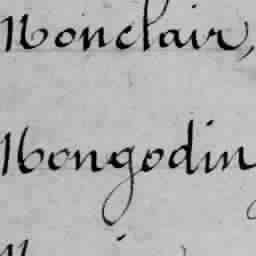 Monclair,
Mongodin